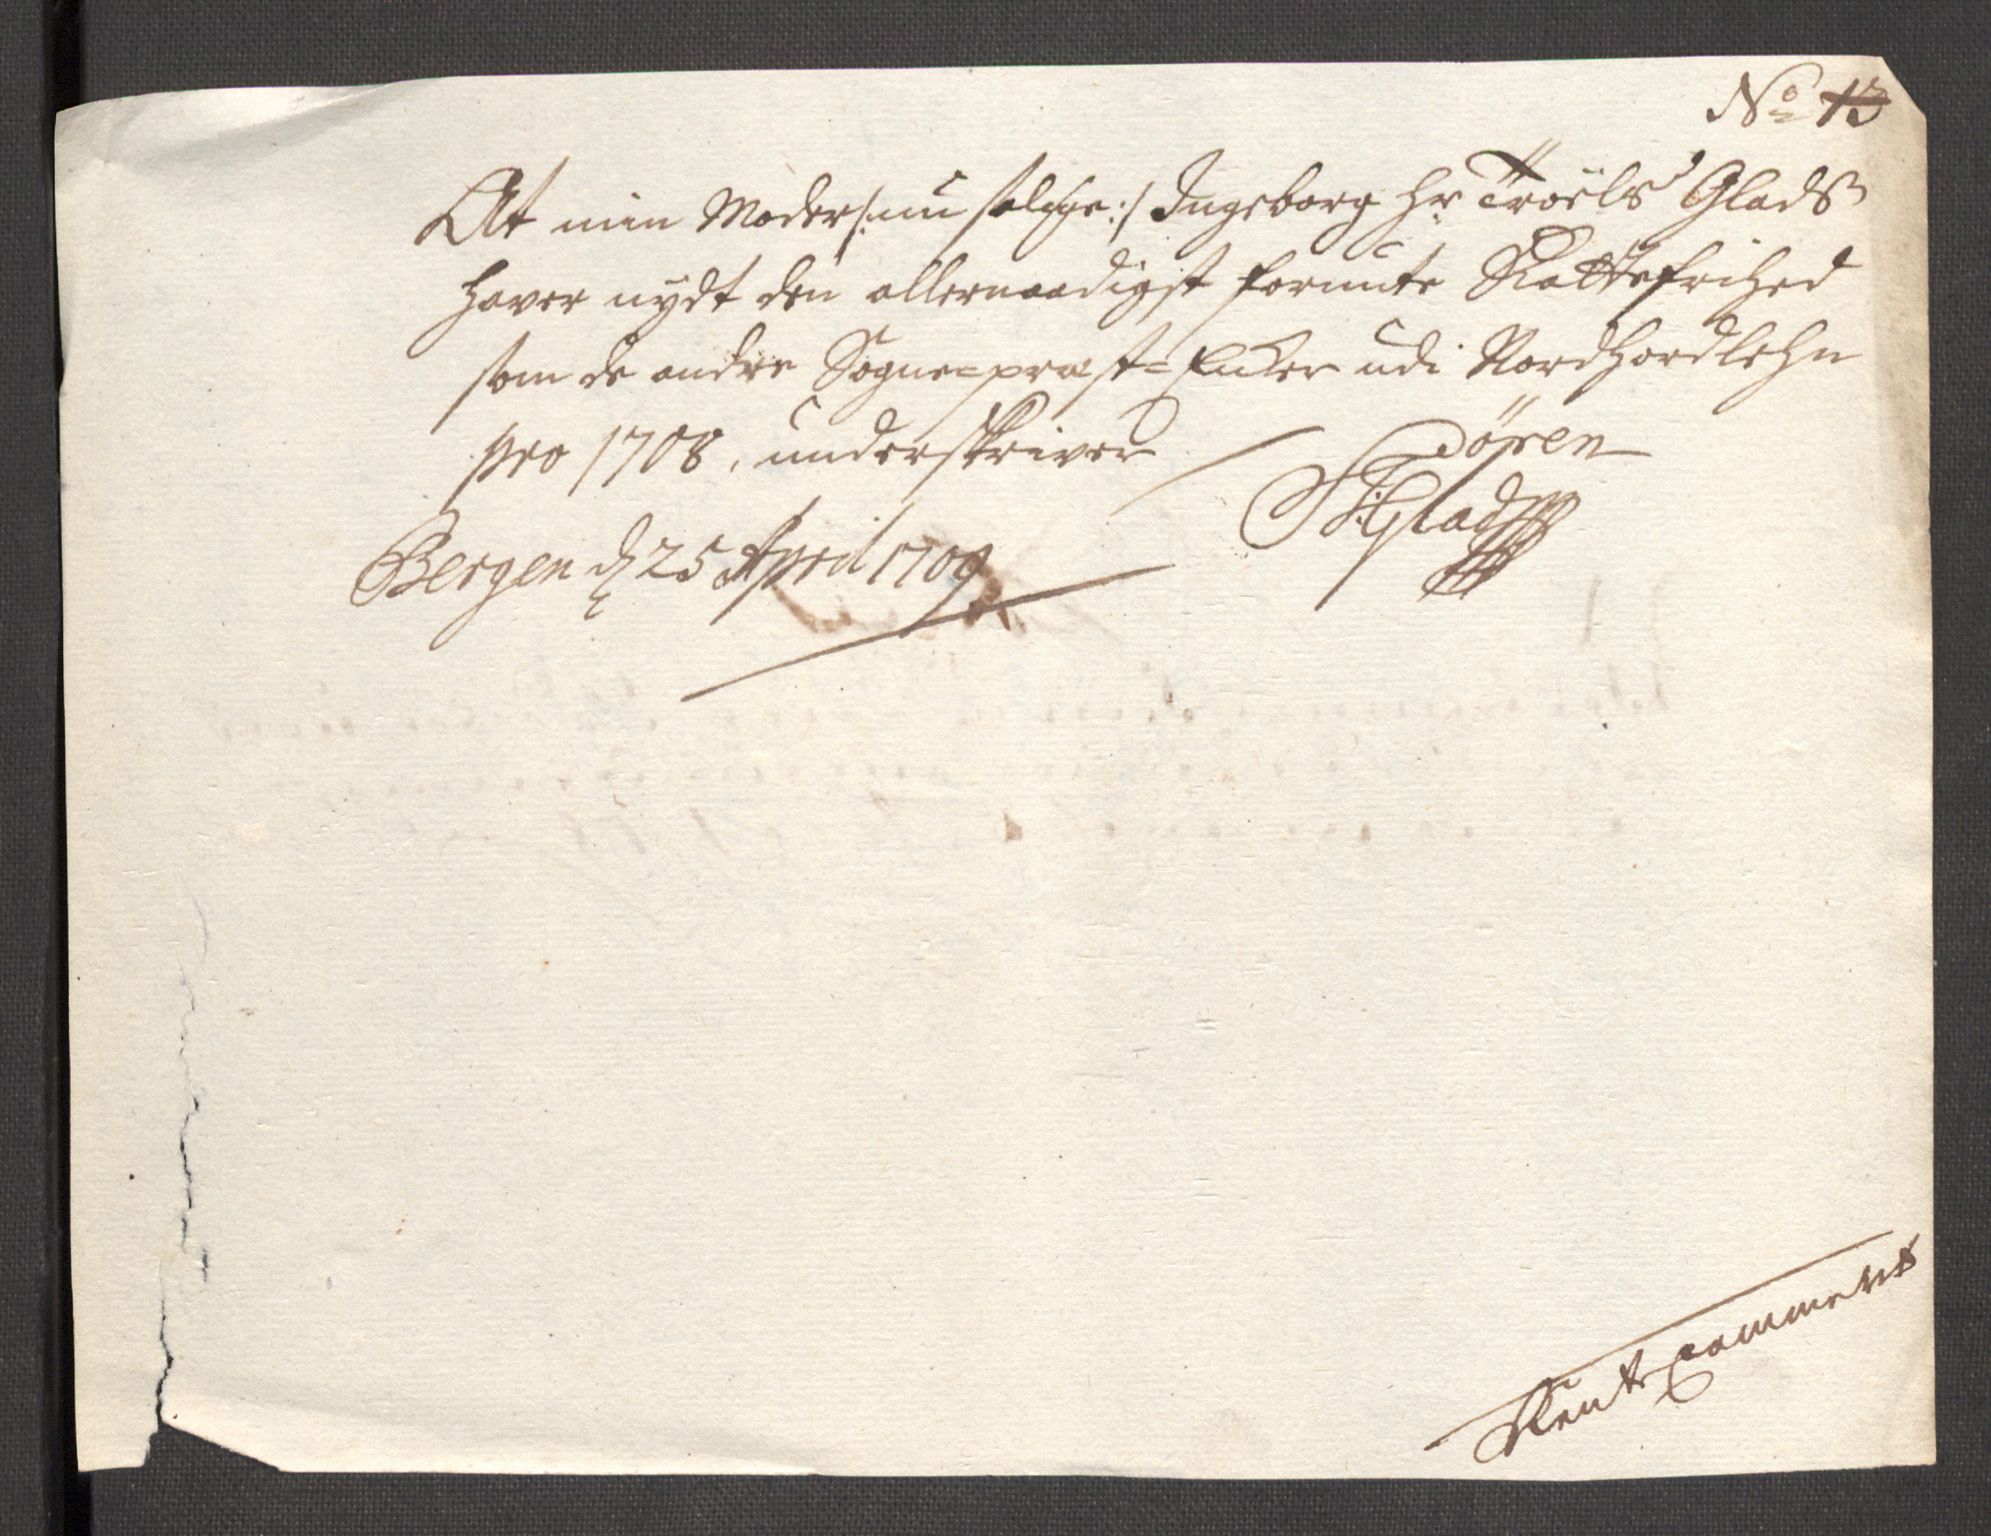 No 13
At min Moder /: nu salige :/ Ingeborg Hr Troëls Glads
haver nydt den allernaadigst forunte Skattefrihed
som de andre Sogne=præst=Enker udi Nordhordlehn
pro 1708, underskriver
Sören
Glad
Bergen d 25 April 1709
Rente Cammeret